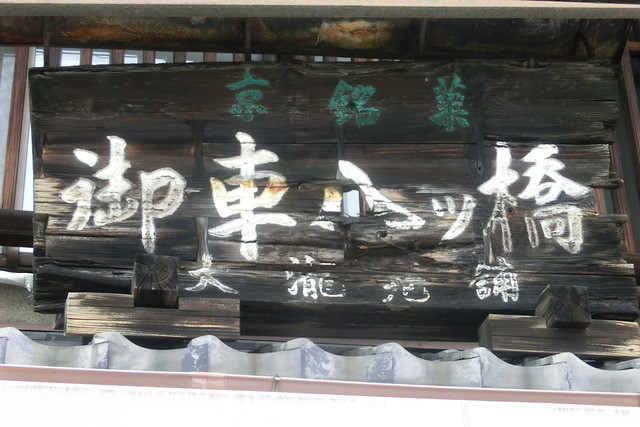 京銘菓
御車八ッ橋
大瀧老舗